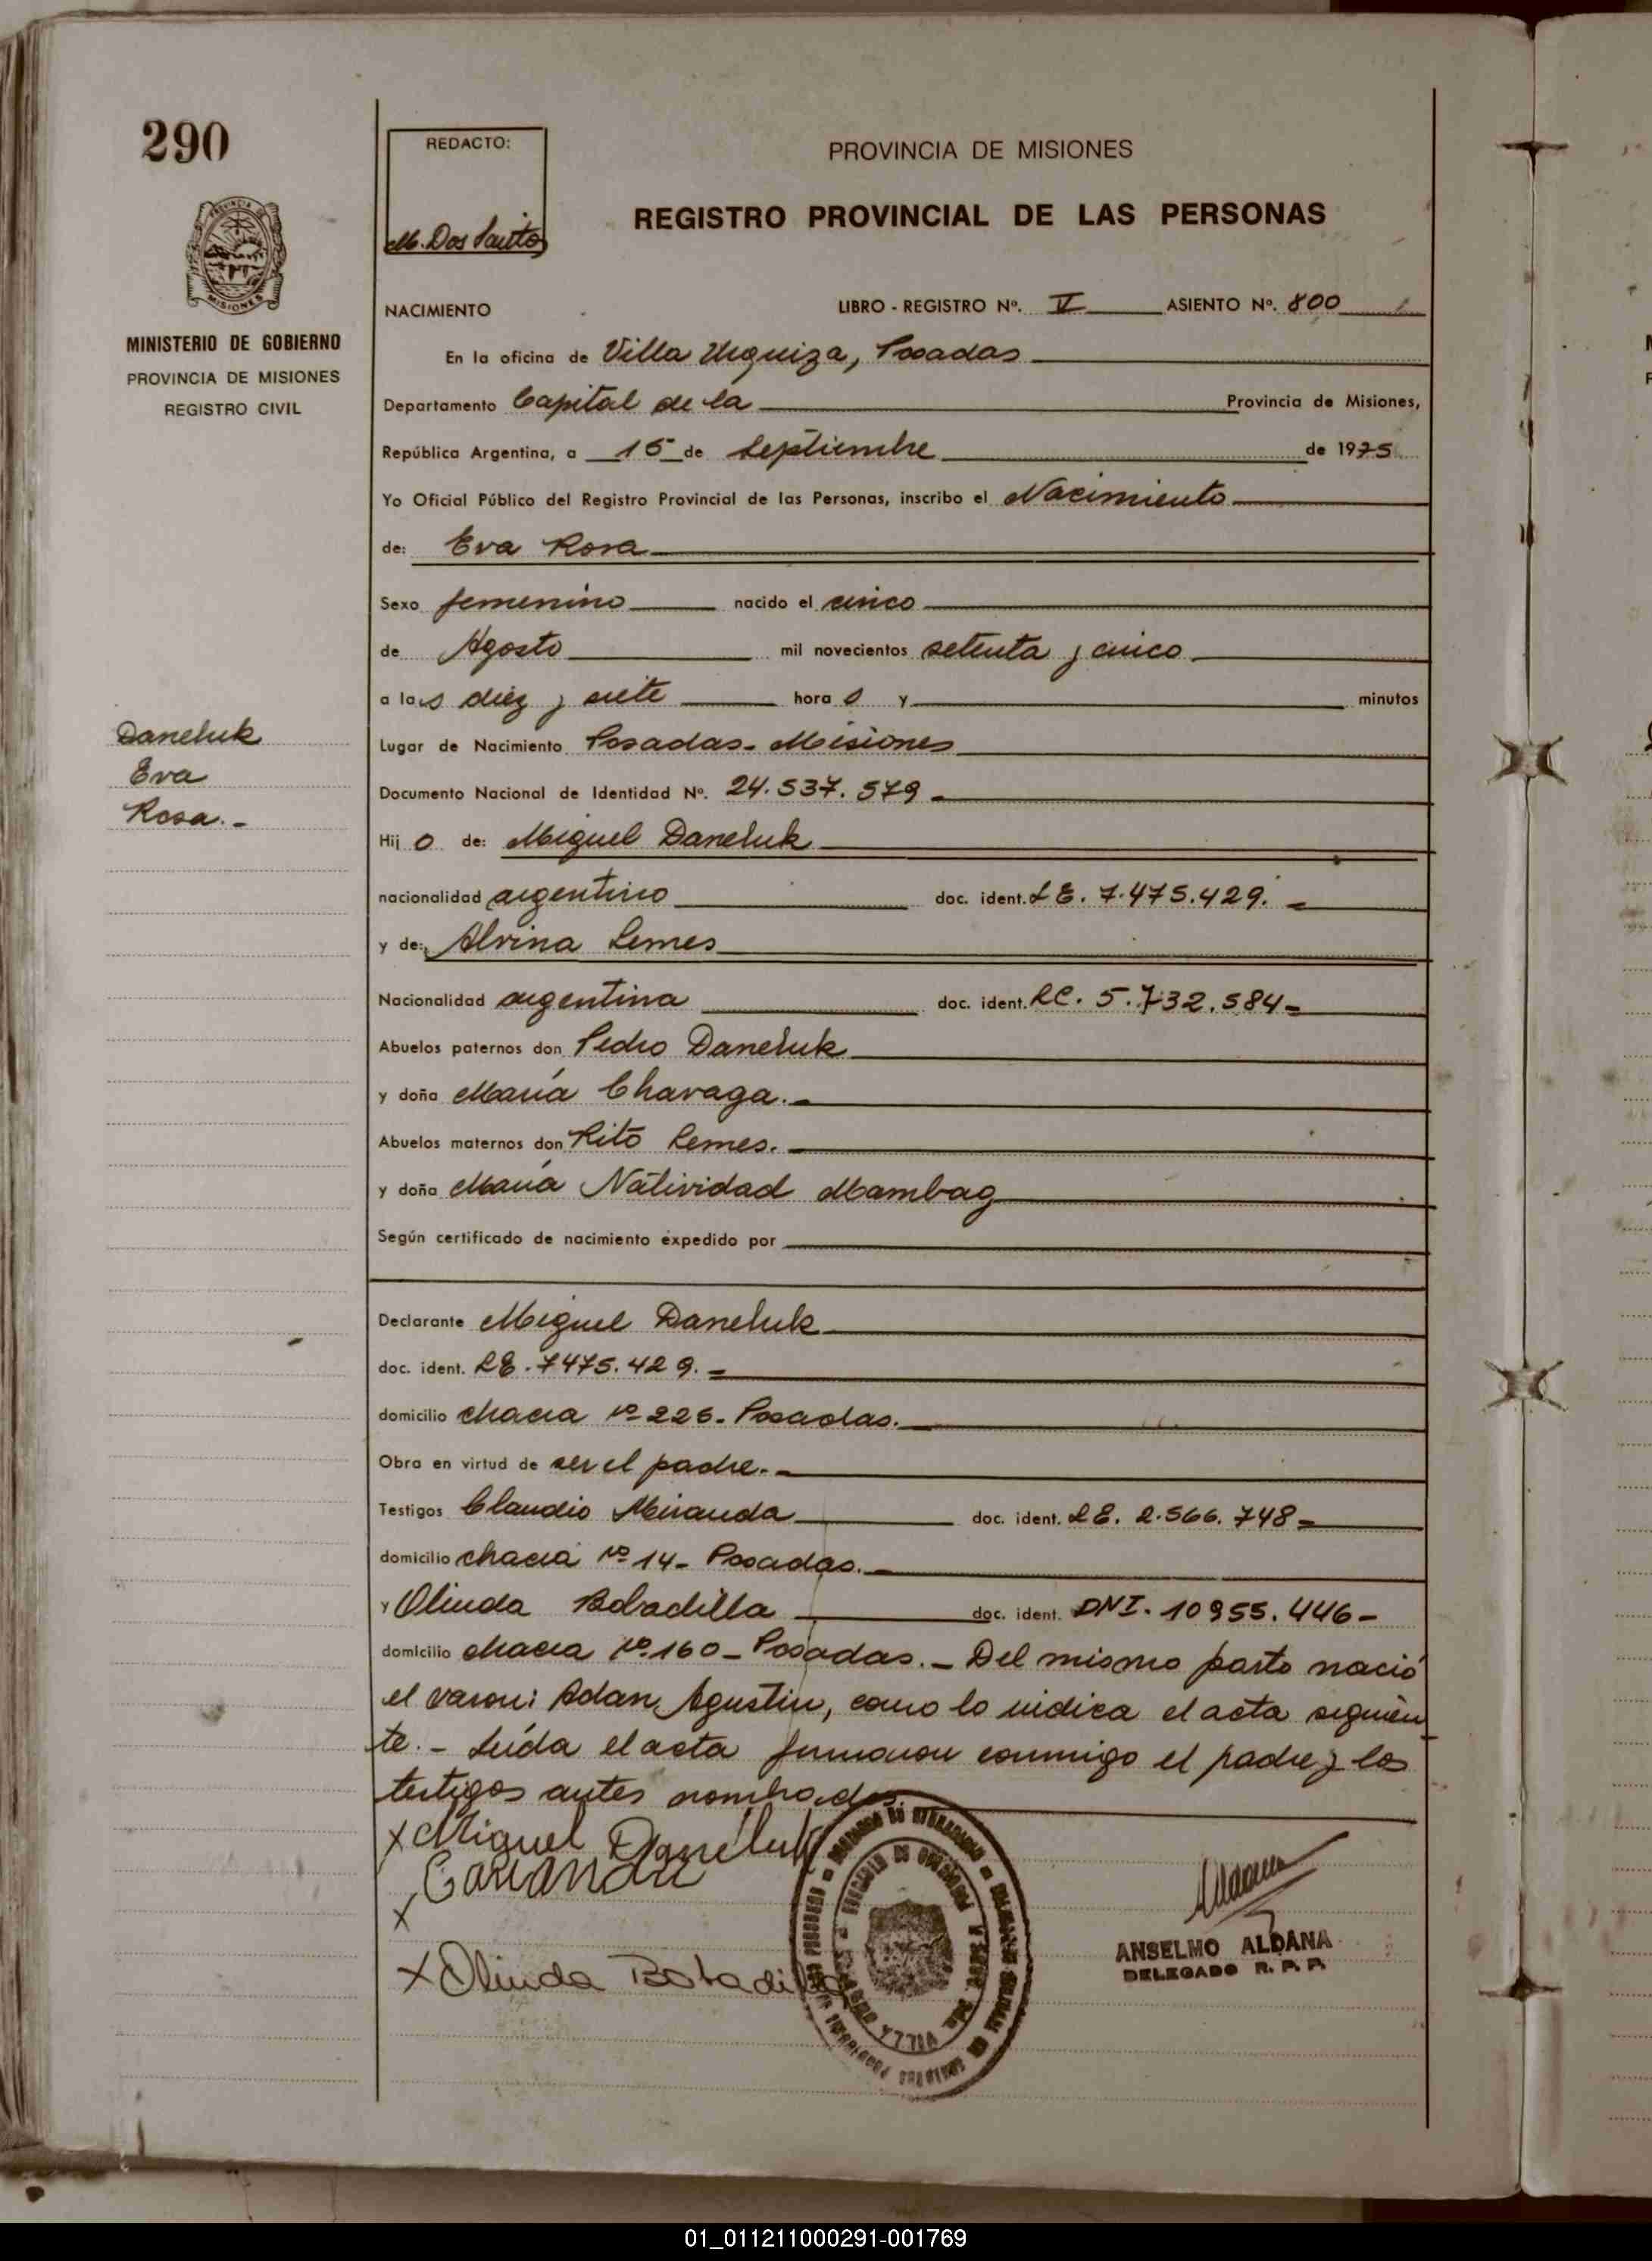 290
REDACTO:
M. Dos Santos
PROVINCIA DE MISIONES
REGISTRO PROVINCIAL DE LAS PERSONAS
PROVINCIA DE
MISIONES
MINISTERIO DE GOBIERNO
PROVINCIA DE MISIONES
REGISTRO CIVIL
NACIMIENTO LIBRO - REGISTRO Nº. V ASIENTO Nº. 800
En la oficina de Villa Urquiza, Posadas
Departamento Capital de la Provincia de Misiones,
República Argentina, a 15 de Septiembre de 1975
Yo Oficial Público del Registro Provincial de las Personas, inscribo el Nacimiento
de: Eva Rosa
Sexo femenino nacido el cinco
de Agosto mil novecientos setenta y cinco
a las diez y siete hora 0 y minutos
Lugar de Nacimiento Posadas - Misiones
Documento Nacional de Identidad Nº. 24.537.579 -
Daneluk
Eva
Rosa.-
Hij o de: Miguel Daneluk
nacionalidad argentino doc. ident. LE. 7.475.429. -
y de: Alvina Lemes
Nacionalidad argentina doc. ident. LC. 5.732.584 -
Abuelos paternos don Pedro Daneluk
y doña María Chavaga. -
Abuelos maternos don Rito Lemes. -
y doña María Natividad Mambag
Según certificado de nacimiento expedido por
Declarante Miguel Daneluk
doc. ident. LE. 7475.429. -
domicilio chacra nº 226 - Posadas. -
Obra en virtud de ser el padre. -
Testigos Claudio Miranda doc. ident. LE. 2.566.748 -
domicilio chacra nº 14 - Posadas. -
y Olinda Bobadilla doc. ident. DNI. 10955.446 -
domicilio chacra nº 160 - Posadas. - Del mismo parto nació
el varon: Adan Agustin, como lo indica el acta siguien
te. - Leída el acta firmaron conmigo el padre y los
testigos antes nombrados.
x Miguel Daneluk
x
x Olinda Bobadilla
ANSELMO ALDANA
DELEGADO R. P. P.
01_011211000291-001769